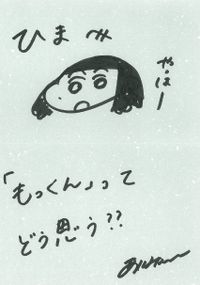 ひまみ
や・はー
「もっくん」って
どう思う??